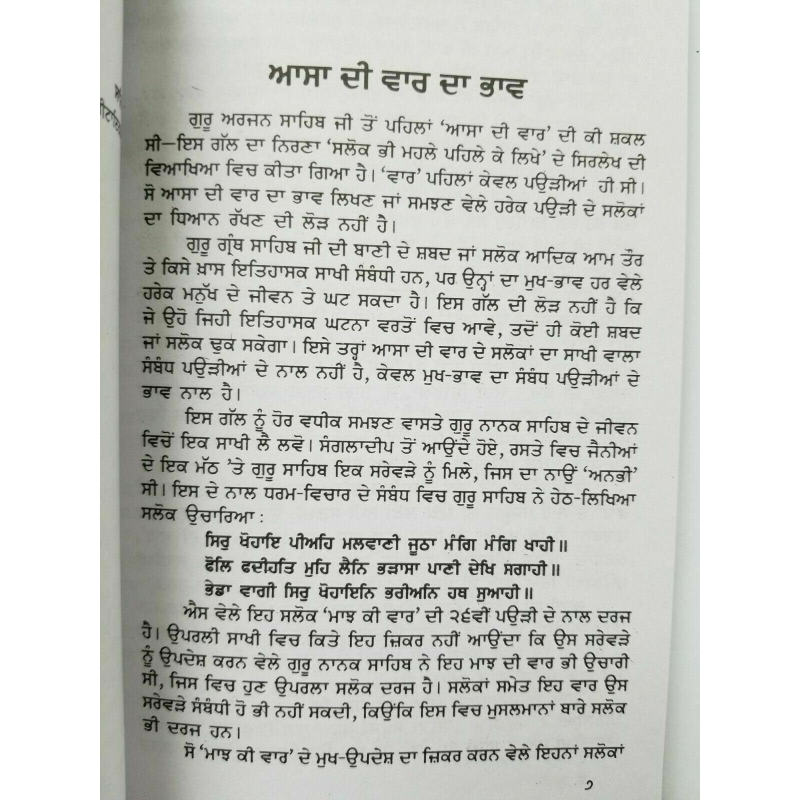 ਆਸਾ ਦੀ ਵਾਰ ਦਾ ਭਾਵ
ਗੁਰੂ ਅਰਜਨ ਸਾਹਿਬ ਜੀ ਤੋਂ ਪਹਿਲਾਂ ‘ਆਸਾ ਦੀ ਵਾਰ’ ਦੀ ਕੀ ਸ਼ਕਲ
ਸੀ—ਇਸ ਗੱਲ ਦਾ ਨਿਰਣਾ ‘ਸਲੋਕ ਭੀ ਮਹਲੇ ਪਹਿਲੇ ਕੇ ਲਿਖੇ’ ਦੇ ਸਿਰਲੇਖ ਦੀ
ਵਿਆਖਿਆ ਵਿਚ ਕੀਤਾ ਗਿਆ ਹੈ। ‘ਵਾਰ’ ਪਹਿਲਾਂ ਕੇਵਲ ਪਉੜੀਆਂ ਹੀ ਸੀ।
ਸੋ ਆਸਾ ਦੀ ਵਾਰ ਦਾ ਭਾਵ ਲਿਖਣ ਜਾਂ ਸਮਝਣ ਵੇਲੇ ਹਰੇਕ ਪਉੜੀ ਦੇ ਸਲੋਕਾਂ
ਦਾ ਧਿਆਨ ਰੱਖਣ ਦੀ ਲੋੜ ਨਹੀਂ ਹੈ।
ਗੁਰੂ ਗ੍ਰੰਥ ਸਾਹਿਬ ਜੀ ਦੀ ਬਾਣੀ ਦੇ ਸ਼ਬਦ ਜਾਂ ਸਲੋਕ ਆਦਿਕ ਆਮ ਤੌਰ
ਤੇ ਕਿਸੇ ਖ਼ਾਸ ਇਤਿਹਾਸਕ ਸਾਖੀ ਸੰਬੰਧੀ ਹਨ, ਪਰ ਉਨ੍ਹਾਂ ਦਾ ਮੁਖ-ਭਾਵ ਹਰ ਵੇਲੇ
ਹਰੇਕ ਮਨੁੱਖ ਦੇ ਜੀਵਨ ਤੇ ਘਟ ਸਕਦਾ ਹੈ। ਇਸ ਗੱਲ ਦੀ ਲੋੜ ਨਹੀਂ ਹੈ ਕਿ
ਜੇ ਉਹੋ ਜਿਹੀ ਇਤਿਹਾਸਕ ਘਟਨਾ ਵਰਤੋਂ ਵਿਚ ਆਵੇ, ਤਦੋਂ ਹੀ ਕੋਈ ਸ਼ਬਦ
ਜਾਂ ਸਲੋਕ ਢੁਕ ਸਕੇਗਾ। ਇਸੇ ਤਰ੍ਹਾਂ ਆਸਾ ਦੀ ਵਾਰ ਦੇ ਸਲੋਕਾਂ ਦਾ ਸਾਖੀ ਵਾਲਾ
ਸੰਬੰਧ ਪਉੜੀਆਂ ਦੇ ਨਾਲ ਨਹੀਂ ਹੈ, ਕੇਵਲ ਮੁਖ-ਭਾਵ ਦਾ ਸੰਬੰਧ ਪਉੜੀਆਂ ਦੇ
ਭਾਵ ਨਾਲ ਹੈ।
ਇਸ ਗੱਲ ਨੂੰ ਹੋਰ ਵਧੀਕ ਸਮਝਣ ਵਾਸਤੇ ਗੁਰੂ ਨਾਨਕ ਸਾਹਿਬ ਦੇ ਜੀਵਨ
ਵਿਚੋਂ ਇਕ ਸਾਖੀ ਲੈ ਲਵੋ। ਸੰਗਲਾਦੀਪ ਤੋਂ ਆਉਂਦੇ ਹੋਏ, ਰਸਤੇ ਵਿਚ ਜੈਨੀਆਂ
ਦੇ ਇਕ ਮੱਠ ’ਤੇ ਗੁਰੂ ਸਾਹਿਬ ਇਕ ਸਰੇਵੜੇ ਨੂੰ ਮਿਲੇ, ਜਿਸ ਦਾ ਨਾਉਂ ‘ਅਨਭੀ’
ਸੀ। ਇਸ ਦੇ ਨਾਲ ਧਰਮ-ਵਿਚਾਰ ਦੇ ਸੰਬੰਧ ਵਿਚ ਗੁਰੂ ਸਾਹਿਬ ਨੇ ਹੇਠ-ਲਿਖਿਆ
ਸਲੋਕ ਉਚਾਰਿਆ :
ਸਿਰੁ ਖੋਹਾਇ ਪੀਅਹਿ ਮਲਵਾਣੀ ਜੂਠਾ ਮੰਗਿ ਮੰਗਿ ਖਾਹੀ॥
ਫੋਲਿ ਫਦੀਹਤਿ ਮੁਹਿ ਲੈਨਿ ਭੜਾਸਾ ਪਾਣੀ ਦੇਖਿ ਸਗਾਹੀ॥
ਭੇਡਾ ਵਾਗੀ ਸਿਰੁ ਖੋਹਾਇਨਿ ਭਰੀਅਨਿ ਹਥ ਸੁਆਹੀ॥
ਐਸ ਵੇਲੇ ਇਹ ਸਲੋਕ ‘ਮਾਝ ਕੀ ਵਾਰ’ ਦੀ ੨੬ਵੀਂ ਪਉੜੀ ਦੇ ਨਾਲ ਦਰਜ
ਹੈ। ਉਪਰਲੀ ਸਾਖੀ ਵਿਚ ਕਿਤੇ ਇਹ ਜ਼ਿਕਰ ਨਹੀਂ ਆਉਂਦਾ ਕਿ ਉਸ ਸਰੇਵੜੇ
ਨੂੰ ਉਪਦੇਸ਼ ਕਰਨ ਵੇਲੇ ਗੁਰੂ ਨਾਨਕ ਸਾਹਿਬ ਨੇ ਇਹ ਮਾਝ ਦੀ ਵਾਰ ਭੀ ਉਚਾਰੀ
ਸੀ, ਜਿਸ ਵਿਚ ਹੁਣ ਉਪਰਲਾ ਸਲੋਕ ਦਰਜ ਹੈ। ਸਲੋਕਾਂ ਸਮੇਤ ਇਹ ਵਾਰ ਉਸ
ਸਰੇਵੜੇ ਸੰਬੰਧੀ ਹੋ ਭੀ ਨਹੀਂ ਸਕਦੀ, ਕਿਉਂਕਿ ਇਸ ਵਿਚ ਮੁਸਲਮਾਨਾਂ ਬਾਰੇ ਸਲੋਕ
ਭੀ ਦਰਜ ਹਨ।
ਸੋ ‘ਮਾਝ ਕੀ ਵਾਰ’ ਦੇ ਮੁਖ-ਉਪਦੇਸ਼ ਦਾ ਜ਼ਿਕਰ ਕਰਨ ਵੇਲੇ ਇਹਨਾਂ ਸਲੋਕਾਂ
੭